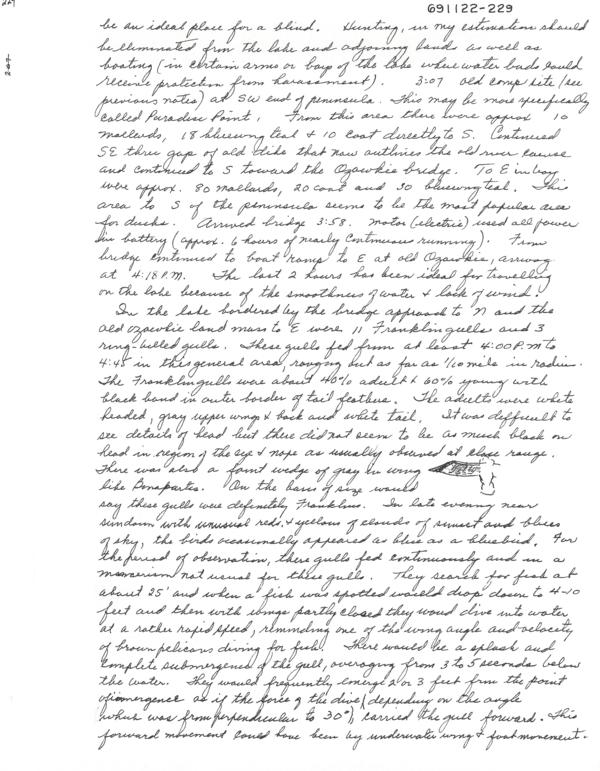 691122-229
be an ideal place for a blind. Hunting, in my estimation should
be eliminated from the lake and adjoining lands as well as
boating (in certain arms or bays of the lake where water birds could
receive protection from harassment). 3:07 old comp site (see
previous notes) at SW end of peninsula. This may be more specifically
called Paradise Point. From this area there were approx 10
mallards, 18 bluewing teal & 10 coot directly to S. Continued
SE thru gap of old dike that now outlines the old river course
and continued to S toward the Ozawkie bridge. To E in bay
were approx. 80 mallards, 20 coot and 30 bluewing teal. This
area to S of the peninsula seems to be the most popular area
for ducks. Arrived bridge 3:58. Motor (electric) used all power
in battery (approx. 6 hours of nearly continuous running). From
bridge continued to boat ramp to E at old Ozawkie, arriving
at 4:18 P.M. The last 2 hours has been ideal for travelling
on the lake because of the smoothness of water & lack of wind.
In the lake bordered by the bridge approach to N and the
old Ozawkie land mass to E were 11 Franklin gulls and 3
ring-billed gulls. These gulls fed from at least 4:00 P.M. to
4:45 in this general area, ranging out as far as 1/10 mile in radius.
The Franklin gulls were about 40% adult & 60% young with
black band in outer border of tail feathers. The adults were white
headed, gray upper wings & back and white tail. It was defficult to
see details of head but there did not seem to be as much black on
head in region of the eye & nape as usually observed at close range.
There was also a faint wedge of gray in wing
like Bonapartes. On the basis of size would
say these gulls were definitely Franklins. In late evening near
sundown with unusual reds & yellows of clouds of sunset and blues
of sky, the birds occasionally appeared as blue as a bluebird. For
the period of observation, these gulls fed continuously and in a
mannerism not usual for these gulls. They search for fish at
about 25' and when a fish was spotted would drop down to 4-10
feet and then with wings partly closed they woud dive into water
at a rather rapid speed, reminding one of the wing angle and velocity
of brown pelicans diving for fish. There would be a splash and
complete submergence of the gull, averaging from 3 to 5 seconds below
the water. They would frequently emerge 2 or 3 feet from the point
of immergence as if the force of the dive (depending on the angle
which was from perpendicular to 30°), carried the gull forward. This
forward movement could have been by underwater wing & foot movement.